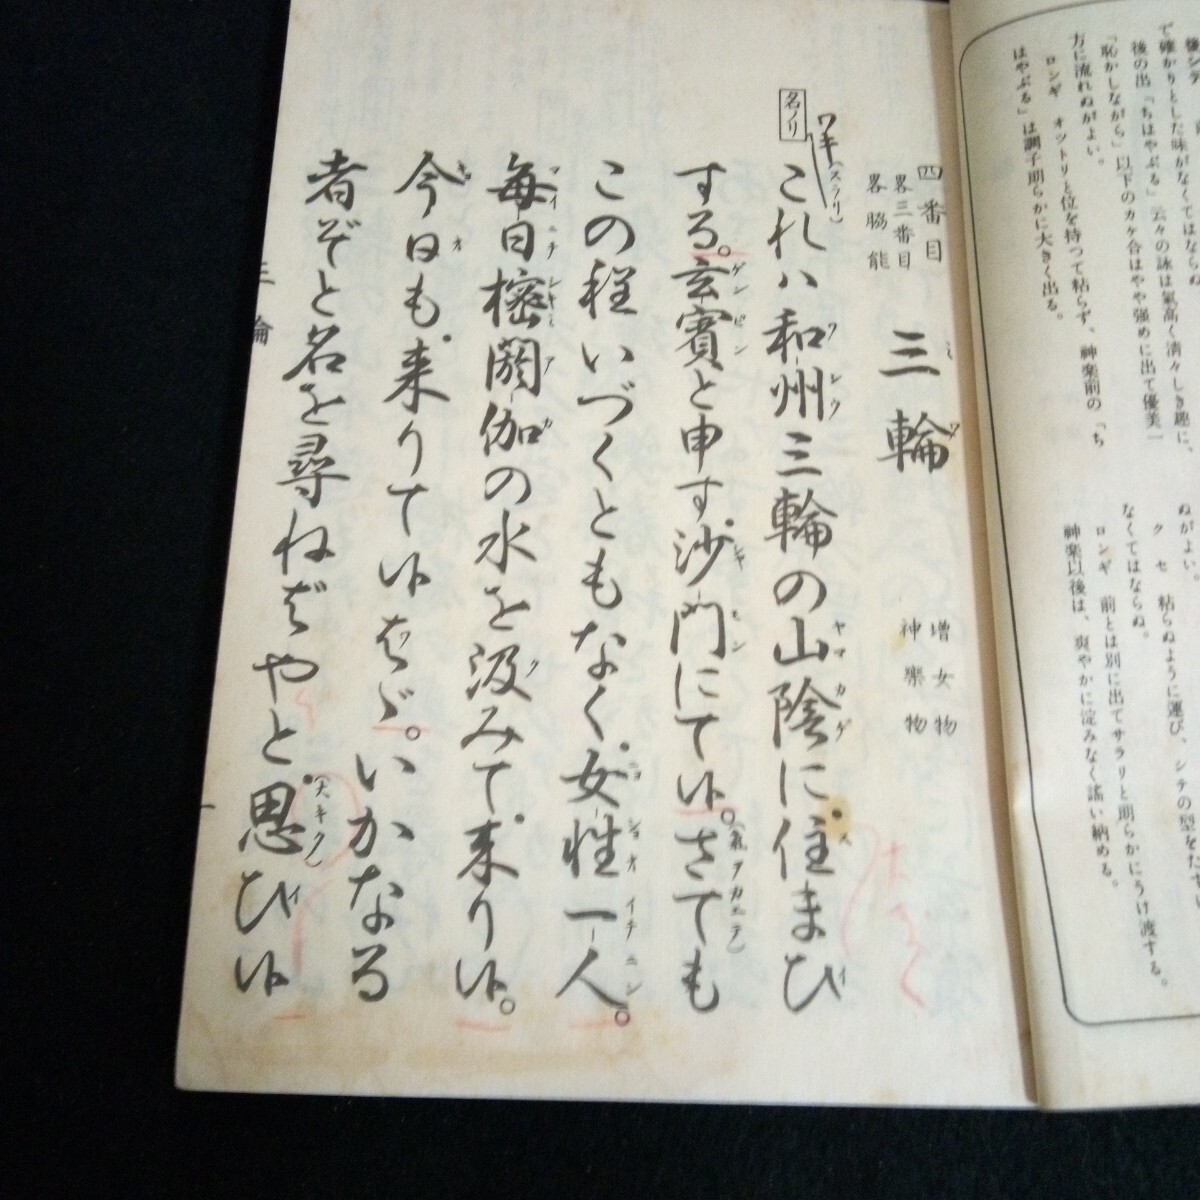 後シテ
で確かりとした味がなくてはならぬ
後の出「ちはやぶる」云々の詠は氣高く清々しき趣に、
「恥かしながら」以下のカケ合はやや強めに出て優美一
方に流れぬがよい。
ロンギ　オットリと位を持つて粘らず、神楽前の「ち
はやぶる」は調子明らかに大きく出る。
ぬがよい。
クセ　粘らぬように運び、シテの型をたす
なくてはならぬ。
ロンギ　前とは別に出てサラリと明らかにうけ渡する。
神楽以後は、爽やかに淀みなく謠い納める。
四番目
畧三番目
畧脇能
三輪
増女物
神樂物
名ノリ
ワキ(スラリ)
これハ和州三輪の山陰に住まひ
する。玄賓と申す沙門にて候。さても
この程いづくともなく女性一人。
毎日樒閼伽の水を汲みて来り候。
今日も来りて候はゞ。いかなる
者ぞと名を尋ねばやと思ひ候
三輪